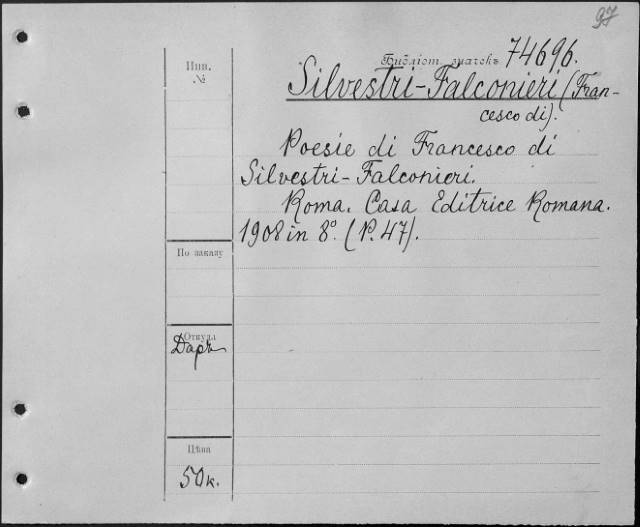 97
Библіот. значекъ 74696.
Инв.
№
Silvestri-Falconieri (Fran-
cesco di).
Poesie di Francesco di
Silvestri-Falconieri.
Roma. Casa Editrice Romana.
1908 in 8°. (P. 47).
По заказу
Откуда
Даръ
Цѣна
50 к.